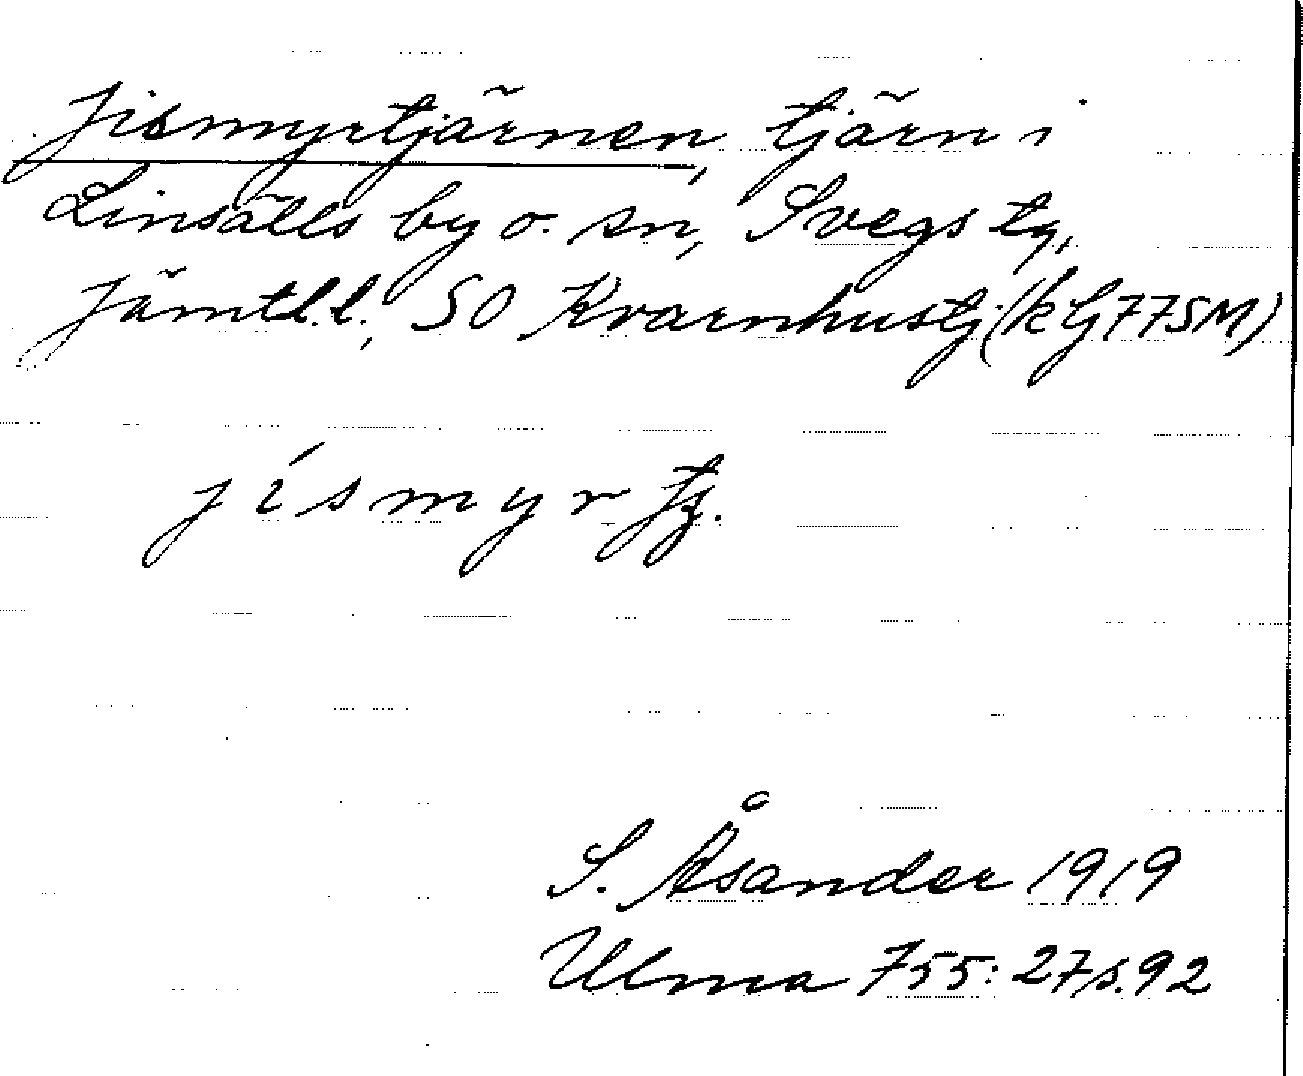 Jismyrtjärnen, tjärn i
Linsälls by o. sn, Svegs tg,
Jämtl.l., SO Kvarnhustj (kG77SM)
jísmyrtj.
S. Åsander 1919
Ulma 755:27 s.92